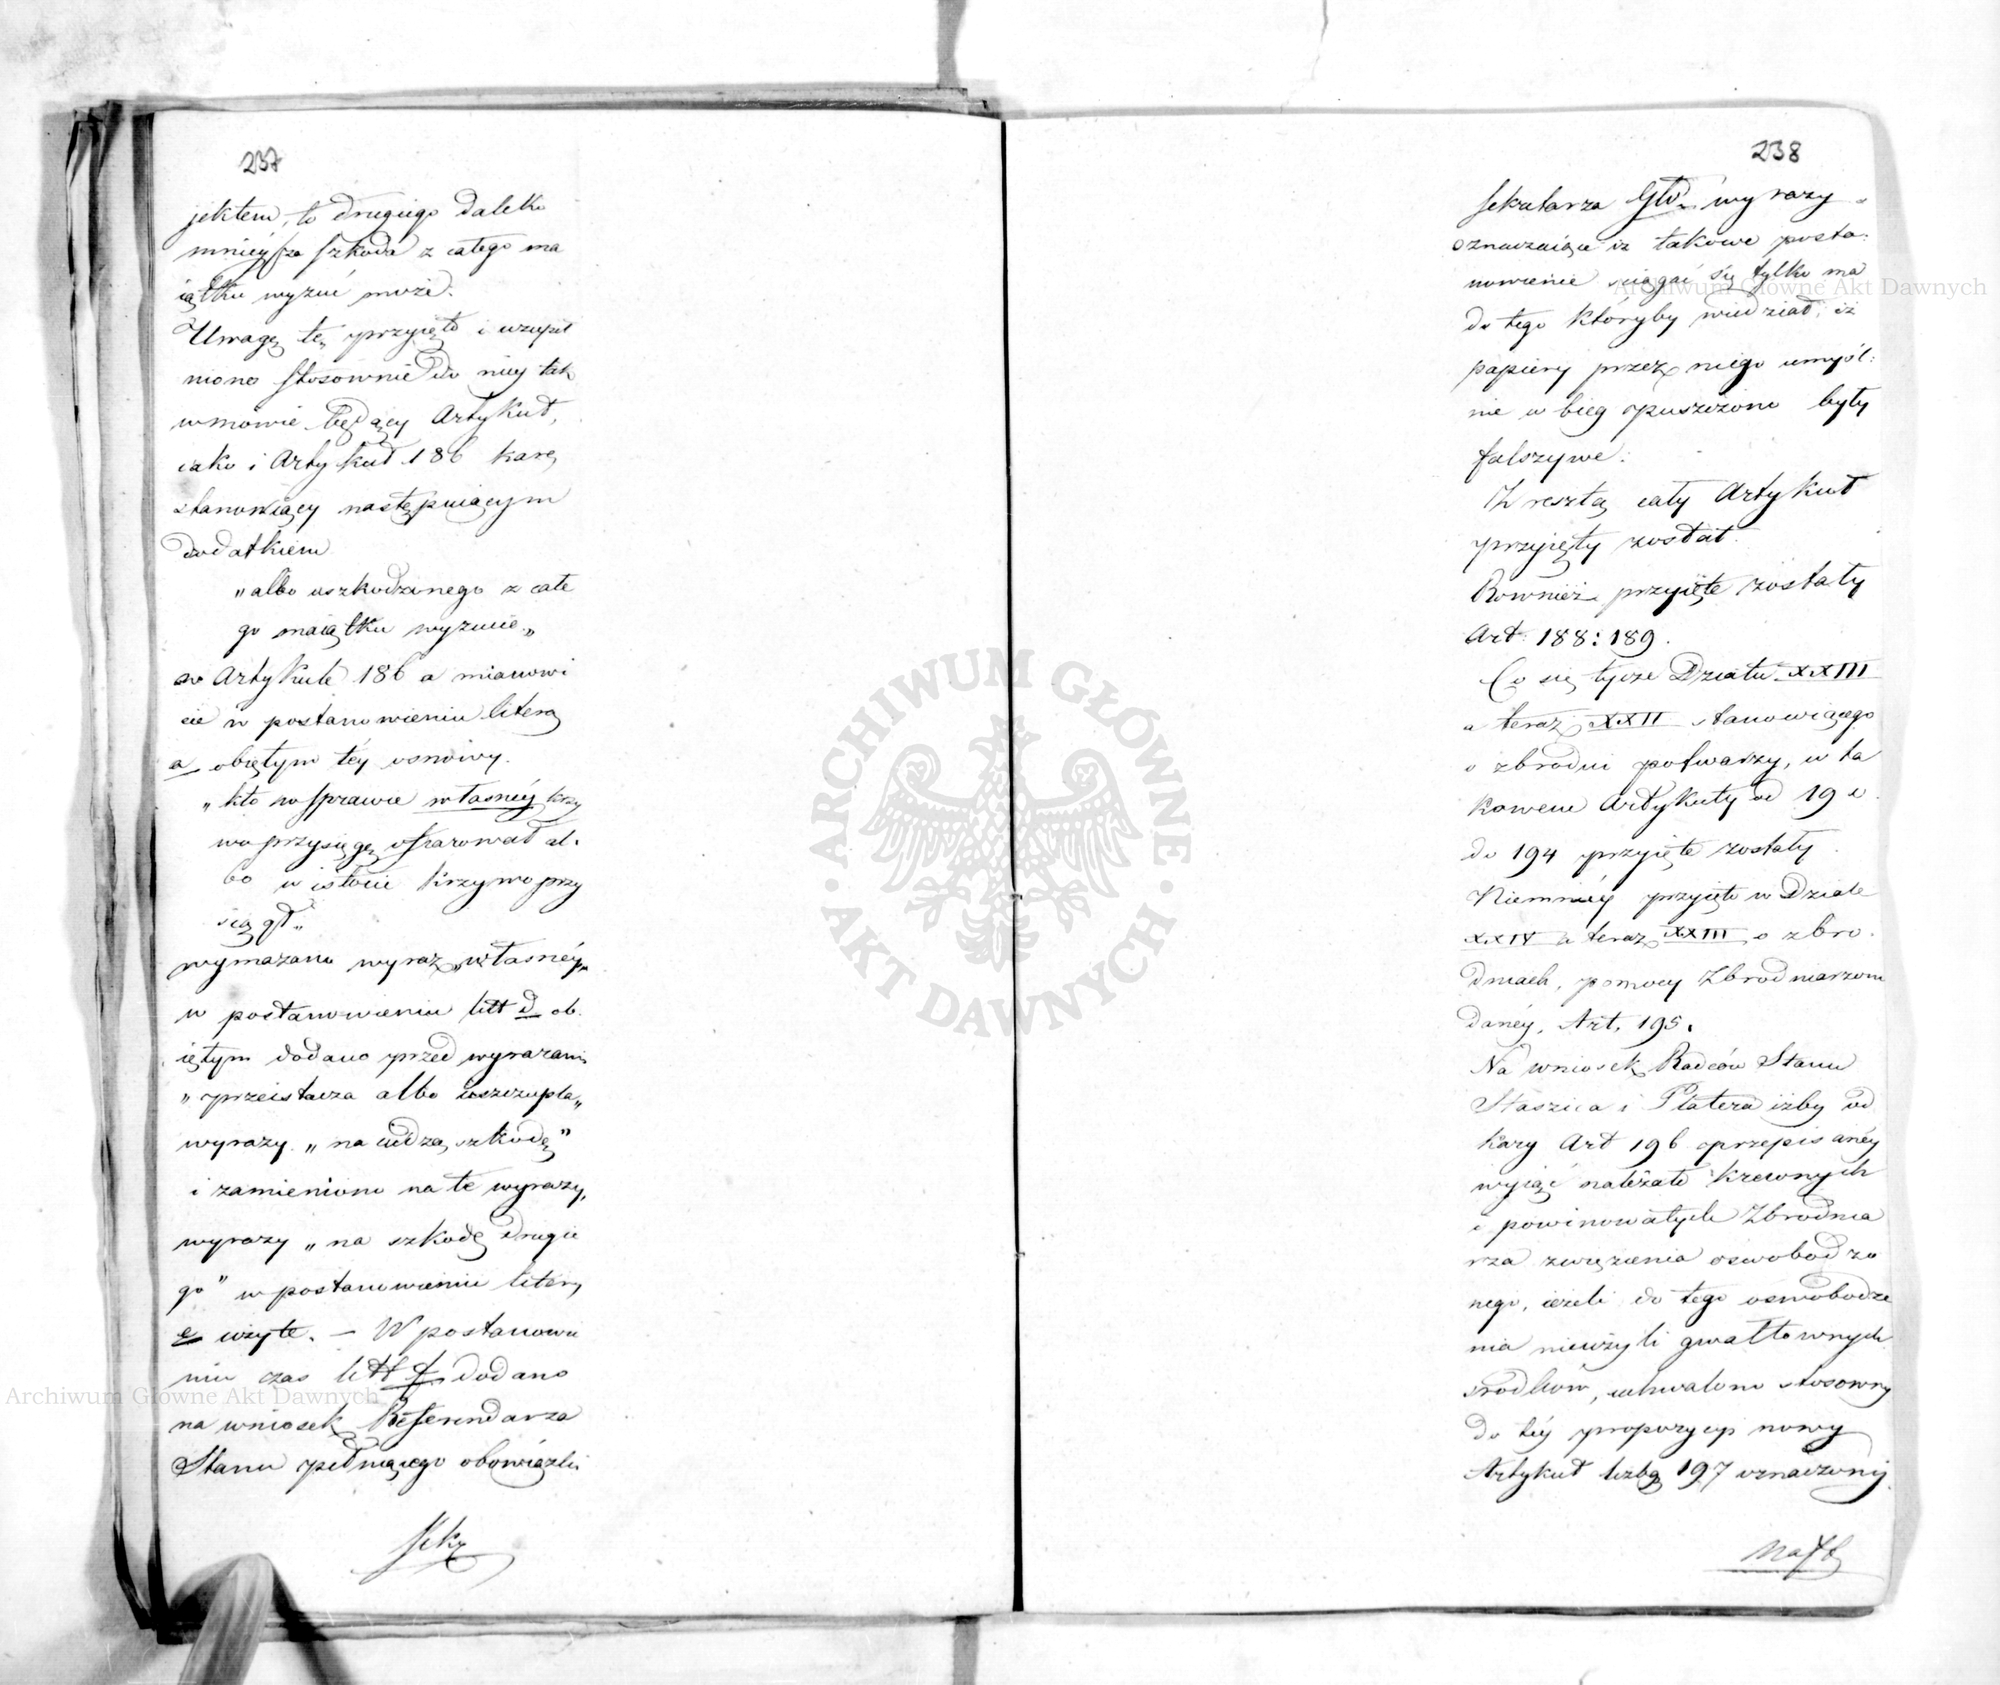 237
jektem, to drugiego daleko
mnieysza szkoda z całego ma
iątku wyzuć może.
Uwagę tę przyięto i uzupeł
niono stosownie do niey tak
w mowie będący Artykuł,
iako i Artykuł 186 karę
stanowiący następuiącym
dodatkiem
„albo uszkodzonego z całe
go maiątku wyzuie„
w Artykule 186 a mianowi
cie w postanowieniu literą
a obiętym téy osnowy.
„kto w sprawie własnéy krzy
woprzysięgę ofiarował al.
bo w istocie krzywo przy
siągł„
wymazano wyraz „własnéy„
w postanowieniu litt d ob.
iętym dodano przed wyrazami
„przeistacza albo uszczupla„
wyrazy „na cudzą szkodę”
i zamieniono na te wyrazy,
wyrazy „na szkodę drugie
go” w postanowieniu litery
e użyte. — W postanowie
niu zaś litt f. dodano
na wniosek Referendarza
Stanu pełniącego obowiązki
Sekr
238
Sekretarza Głó: wyrazy
oznaczaiące iż takowe posta:
nowienie sciągać się tylko ma
do tego któryby wiedział, iż
papiery przez niego umyśl:
nie w bieg opuszczone były
falszywe.
Zresztą cały Artykuł
przyięty został.
Rownież przyięte zostały
Art: 188: 189.
Co się tycze Działu XXIII
a teraz XXII stanowiącego
o zbrodni potwarzy, w ta
kowem Artykuły od 190
do 194 przyięte zostały.
Niemniéy przyięto w Dziale
XXIV a teraz XXIII o zbro.
dniach, pomocy Zbrodniarzom
danéy, Art. 195.
Na wniosek Radców Stanu
Staszica i Platera iżby od
kary Art 196 przepisanéy
wyiąć należało krewnych
i powinowatych Zbrodnia
rza z więzienia oswobodzo
nego, ieżeli do tego oswobodze
nia nieużyli gwałtownych
srodków, uchwalono stosowny
do téy propozycyi nowy
Artykuł liczbą 197 oznaczony.
ARCHIWUM GŁÓWNE
AKT DAWNYCH
Archiwum Główne Akt Dawnych
Archiwum Główne Akt Dawnych